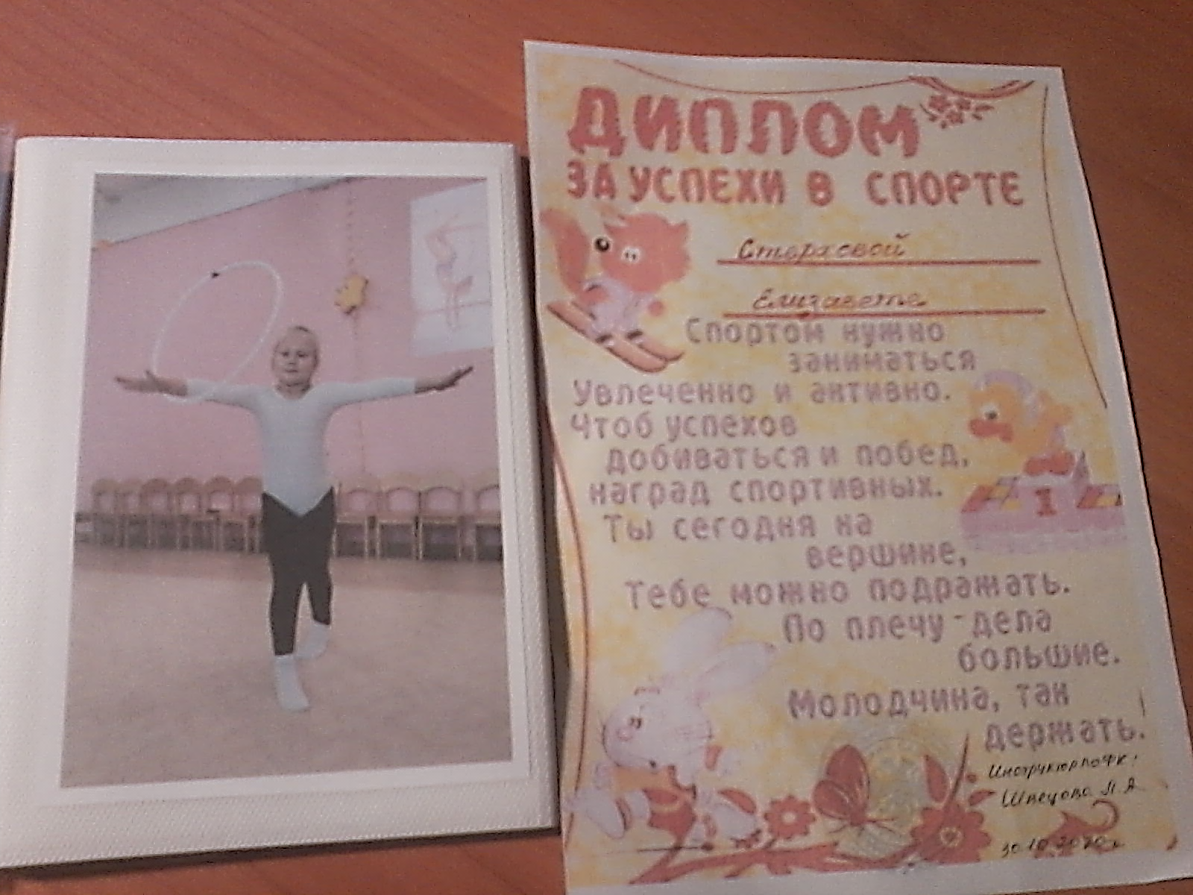 ДИПЛОМ
ЗА УСПЕХИ В СПОРТЕ
Стерховой
Елизавете
Спортом нужно
заниматься
Увлеченно и активно.
Чтоб успехов
добиваться и побед,
наград спортивных.
Ты сегодня на
вершине,
Тебе можно подражать.
По плечу - дела
большие.
Молодчина, так
держать!
1
Инструктор по ФК:
Швецова Л. А.
30.10.2020 г.